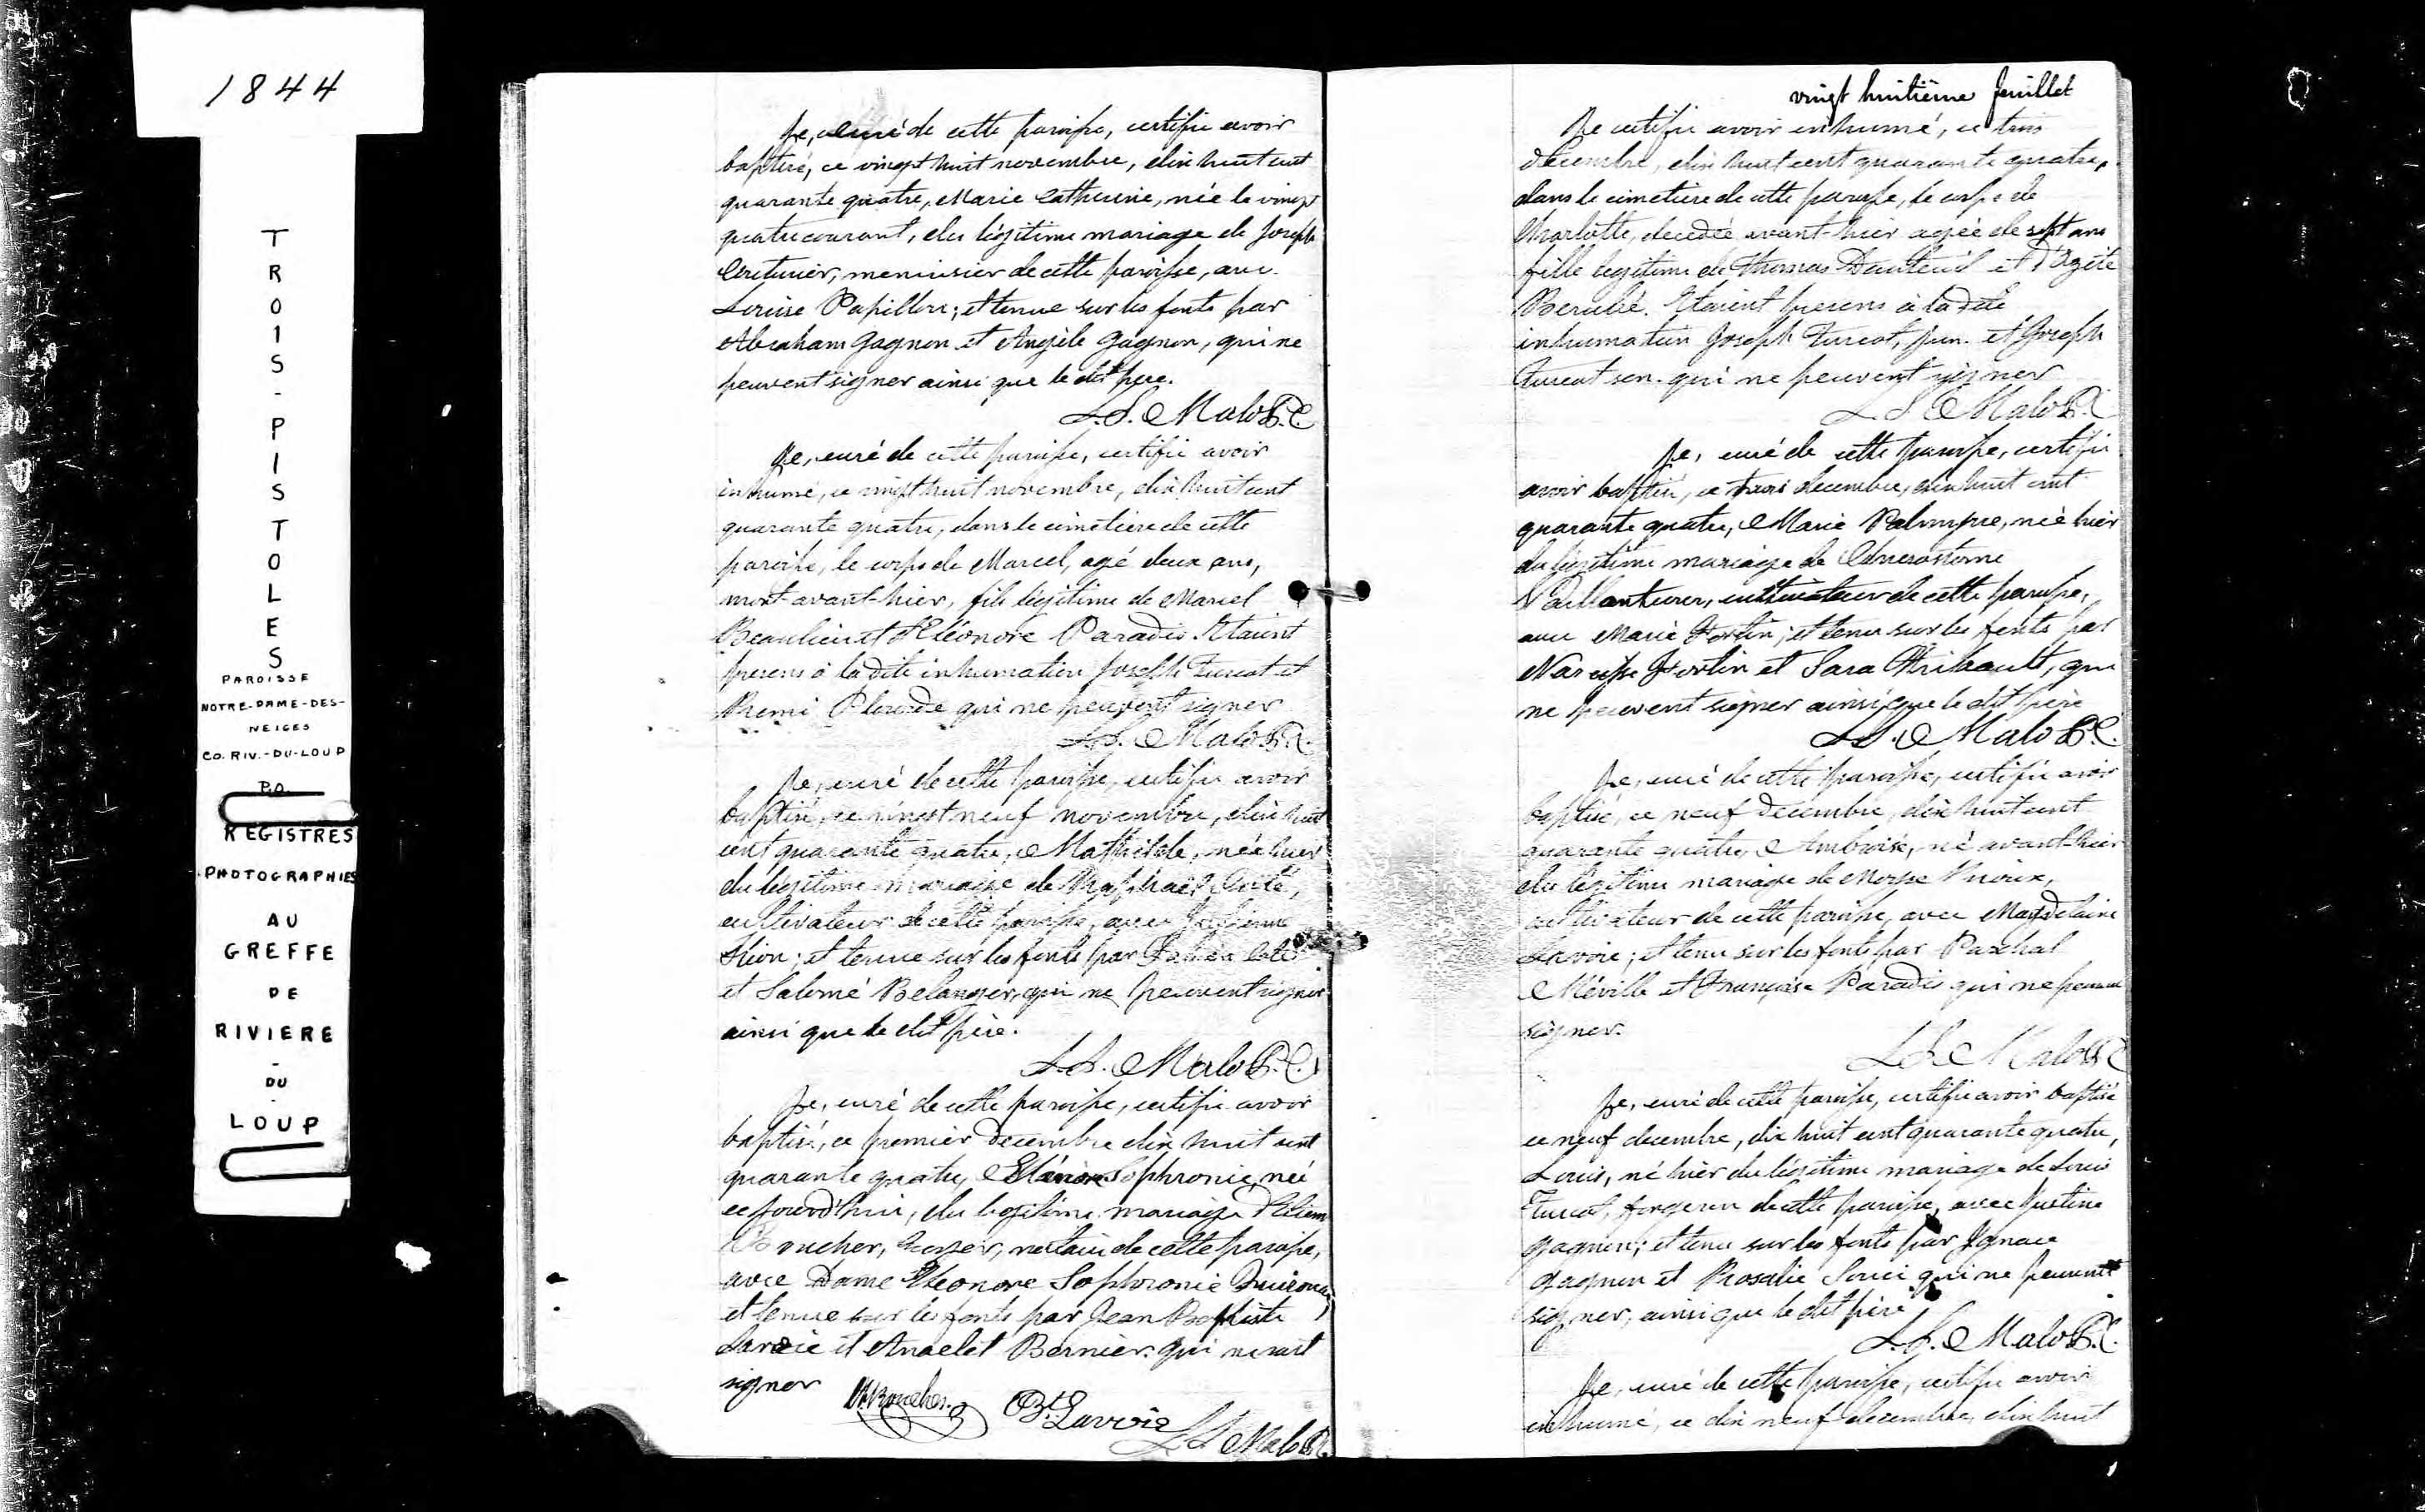 1844
TROIS-PISTOLES
PAROISSE
NOTRE-DAME-DES-
NEIGES
CO. RIV.-DU-LOUP
P.Q.
REGISTRES
PHOTOGRAPHIES
AU
GREFFE
DE
RIVIERE
-
DU
-
LOUP
Je, curé de cette paroisse, certifie avoir
baptisé, ce vingt huit novembre, dix huit cent
quarante quatre, Marie Catherine, née le vingt
quatre courant, du légitime mariage de Joseph
Couturier, menuisier de cette paroisse, avec
Louise Papillon; et tenue sur les fonts par
Abraham Gagnon et Angèle Gagnon, qui ne
peuvent signer ainsi que le dit père.
L.S. Malo P.C
Je, curé de cette paroisse, certifie avoir
inhumé, ce vingt huit novembre, dix huit cent
quarante quatre, dans le cimetière de cette
paroisse, le corps de Marcel, agé deux ans,
mort avant-hier, fils légitime de Marcel
Beaulieu et d'Eléonore Paradis. Etaient
presens à la dite inhumation Joseph Turcot et
Remi Plourde qui ne peuvent signer
L.S. Malo P.C.
Je, curé de cette paroisse, certifie avoir
baptisé, ce vingt neuf novembre, dix huit
cent quarante quatre, Mathilde, née hier
du légitime mariage de Raphael Coté,
cultivateur de cette paroisse, avec
et tenue sur les fonts par Coté
et Salomé Belanger, qui ne peuvent signer
ainsi que le dit père.
L.S. Malo P.C.
Je, curé de cette paroisse, certifie avoir
baptisé, ce premier decembre dix huit cent
quarante quatre, Sophronie, née
ce jourd'hui, du legitime mariage
Boucher, notaire de cette paroisse,
avec Dame Eléonore Sophronie
et tenue sur les fonts par Jean Baptiste
Lavoie et Anaclet Bernier qui
signer
Boucher
Bte Lavoie
L S Malo P.C.
vingt huitième feuillet
Je certifie avoir inhumé, ce trois
decembre, dix huit cent quarante quatre,
dans le cimetière de cette paroisse, le corps de
Charlotte, decedée avant-hier agée de sept ans
fille legitime de Thomas Dauteuil et d'Ozite
Berubé. Etaient presens à la dite
inhumation Joseph Turcot, jun. et Joseph
Turcot sen. qui ne peuvent signer
L S Malo P.C
Je, curé de cette paroisse, certifie
avoir baptisé, ce trois decembre, dix huit cent
quarante quatre, Marie Palmyre, née hier
du légitime mariage de
Vaillancourt, cultivateur de cette paroisse,
avec Marie Fortin; et tenue sur les fonts par
Narcisse Fortin et Sara Thibault, qui
ne peuvent signer ainsi que le dit père
L.S. Malo P.C.
Je, curé de cette paroisse, certifie avoir
baptisé, ce neuf decembre, dix huit cent
quarante quatre, Ambroise, né avant-hier
du légitime mariage de Moyse Rioux,
cultivateur de cette paroisse, avec Magdelaine
Lavoie; et tenu sur les fonts par Paschal
Miville et Françoise Paradis qui ne peuvent
signer.
L S Malo P.C
Je, curé de cette paroisse, certifie avoir baptisé
ce neuf decembre, dix huit cent quarante quatre,
Louis, né hier du légitime mariage de Louis
Turcot, forgeron de cette paroisse, avec Justine
Gagnon; et tenu sur les fonts par Ignace
Gagnon et Rosalie Souci qui ne peuvent
signer, ainsi que le dit père
L.S. Malo P.C.
Je, curé de cette paroisse, certifie avoir
inhumé, ce dix neuf decembre, dix huit